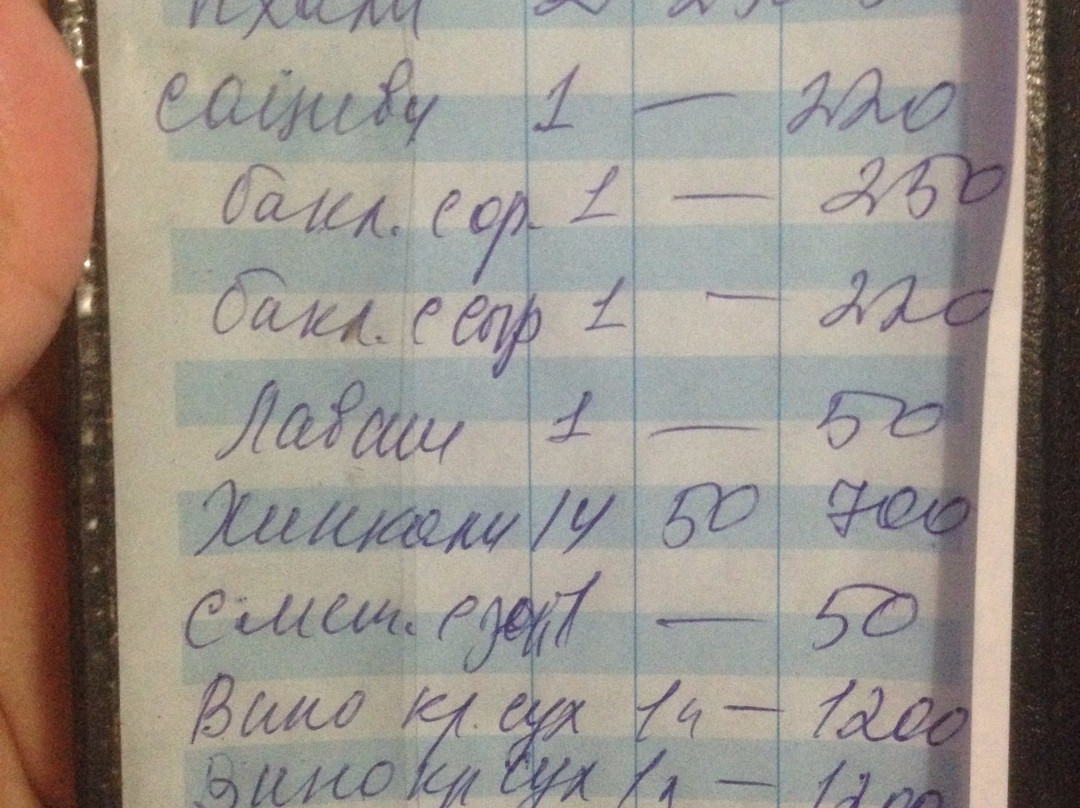 пхали 2
сациви 1 — 220
бакл. с ор. 1 — 250
бакл. с сыр 1 — 220
Лаваш 1 — 50
Хинкали 14 50 700
Смет. 1 — 50
Вино кр. сух 1л — 1200
Вино кр сух 1л — 1200